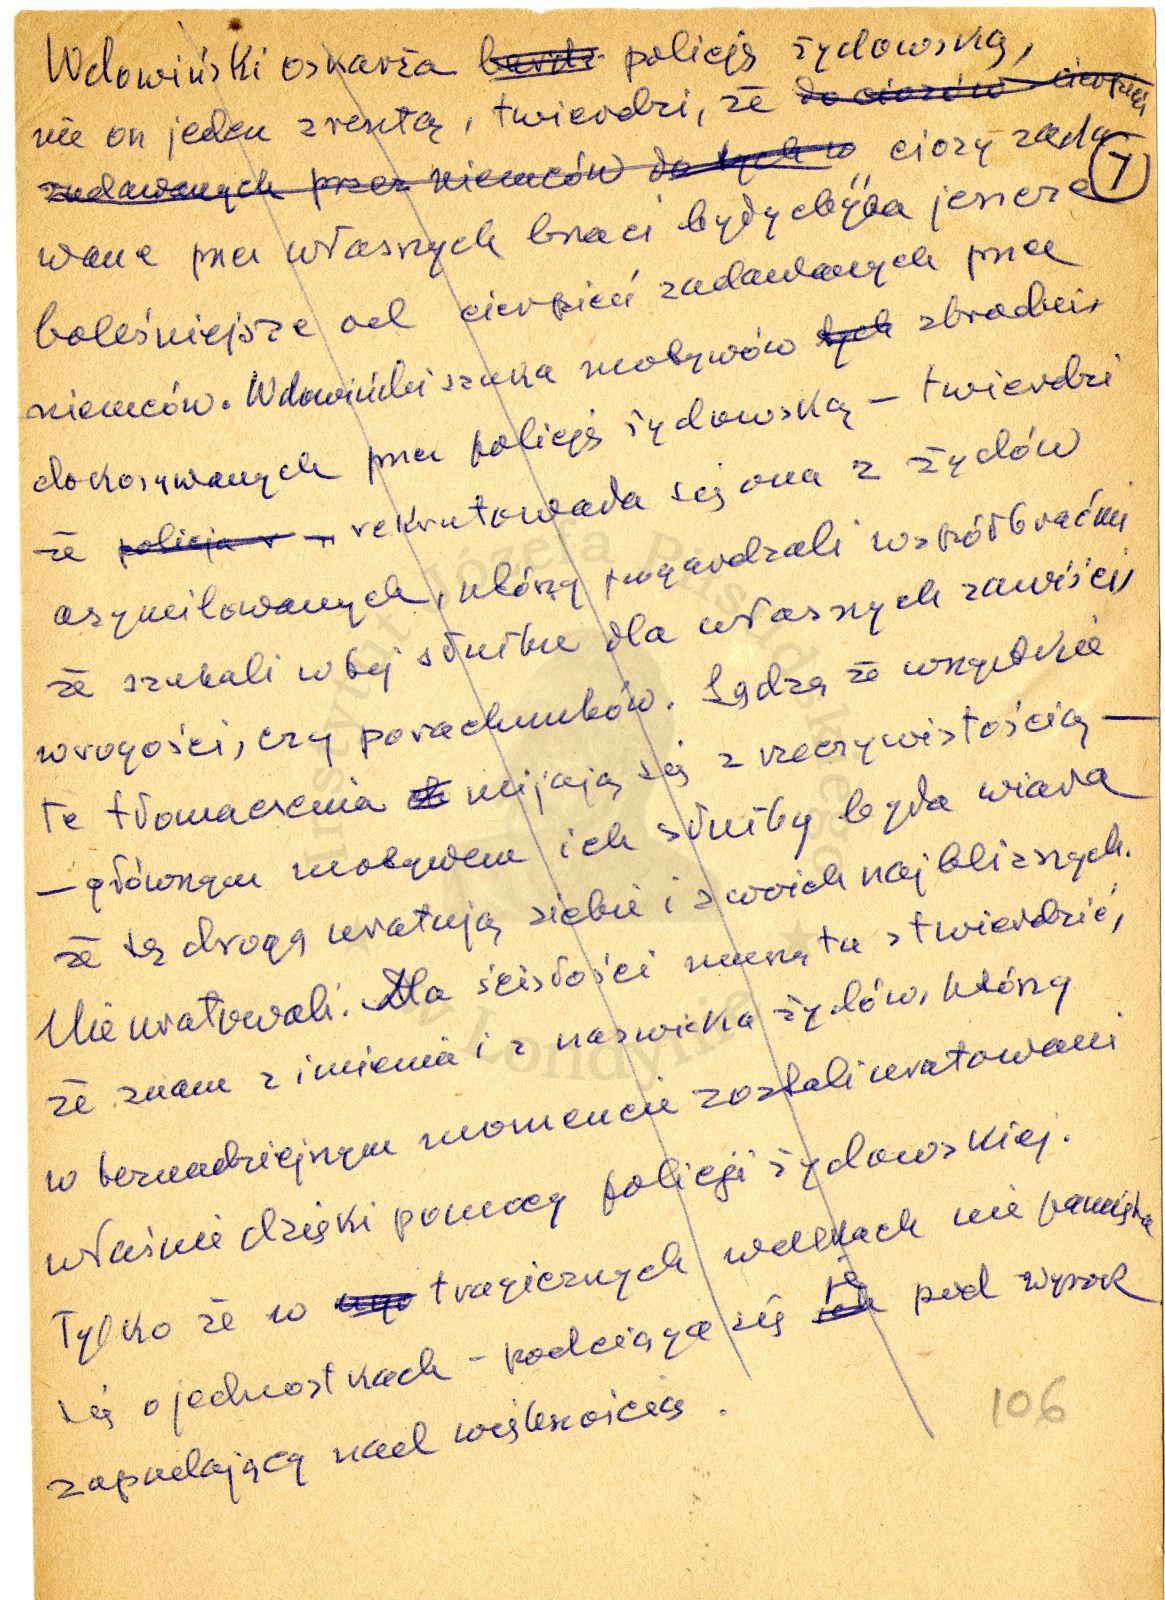 Wdowiński oskarża policję żydowską,
nie on jeden zresztą, twierdzi, że
zadawanych przez niemców do tych w ciosy zada-
7
wane przez własnych braci były chyba jeszcze
boleśniejsze od cierpień zadawanych przez
niemców. Wdowiński szuka motywów tych zbrodni,
dokonywanych przez policję żydowską – twierdzi
że policja rekrutowała się ona z żydów
asymilowanych, którzy pogardzali współbraćmi
że szukali w tej służbie dla własnych zawiści,
wrogości, czy porachunków. Sądzą że wszystkie
te tłomaczenia mijają się z rzeczywistością —
— głównym motywem ich służby była wiara
że tą drogą uratują siebie i swoich najbliższych.
Nie uratowali. Dla ścisłości muszę tu stwierdzić,
że znam z imienia i z nazwiska żydów, którzy
w beznadziejnym momencie zostali uratowani
właśnie dzięki pomocy policji żydowskiej.
Tylko że w tragicznych walkach nie pamięta
się o jednostkach – podciąga się je pod wyrok
zapadający nad większością.
106
Instytut Józefa Piłsudskiego
w Londynie